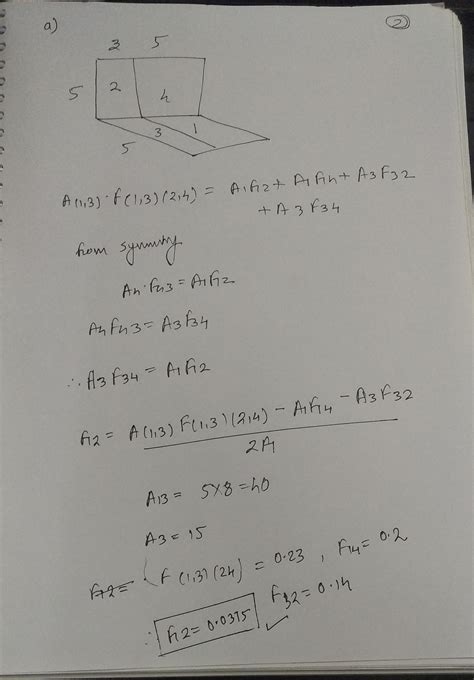 a)
2
3 5
5 2 4
3 1
5
A(1,3) · F(1,3)(2,4) = A1F12 + A1F14 + A3F32
+ A3F34
from symmetry
A4·F43 = A1F12
A4F43 = A3F34
∴ A3F34 = A1F12
F12 = A(1,3) F(1,3)(2,4) - A1F14 - A3F32
2A1
A13 = 5×8 = 40
A3 = 15
F12 = F(1,3)(24) = 0.23 , F14 = 0.2
F32 = 0.14
∴ F12 = 0.0375 ✓